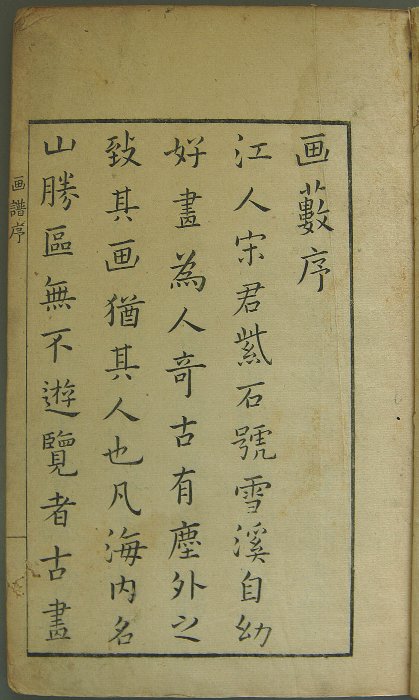 画藪序
江人宋君紫石號雪溪自幼
好畫為人奇古有塵外之
致其画猶其人也凡海内名
山勝區無不遊覽者古畫
画譜序